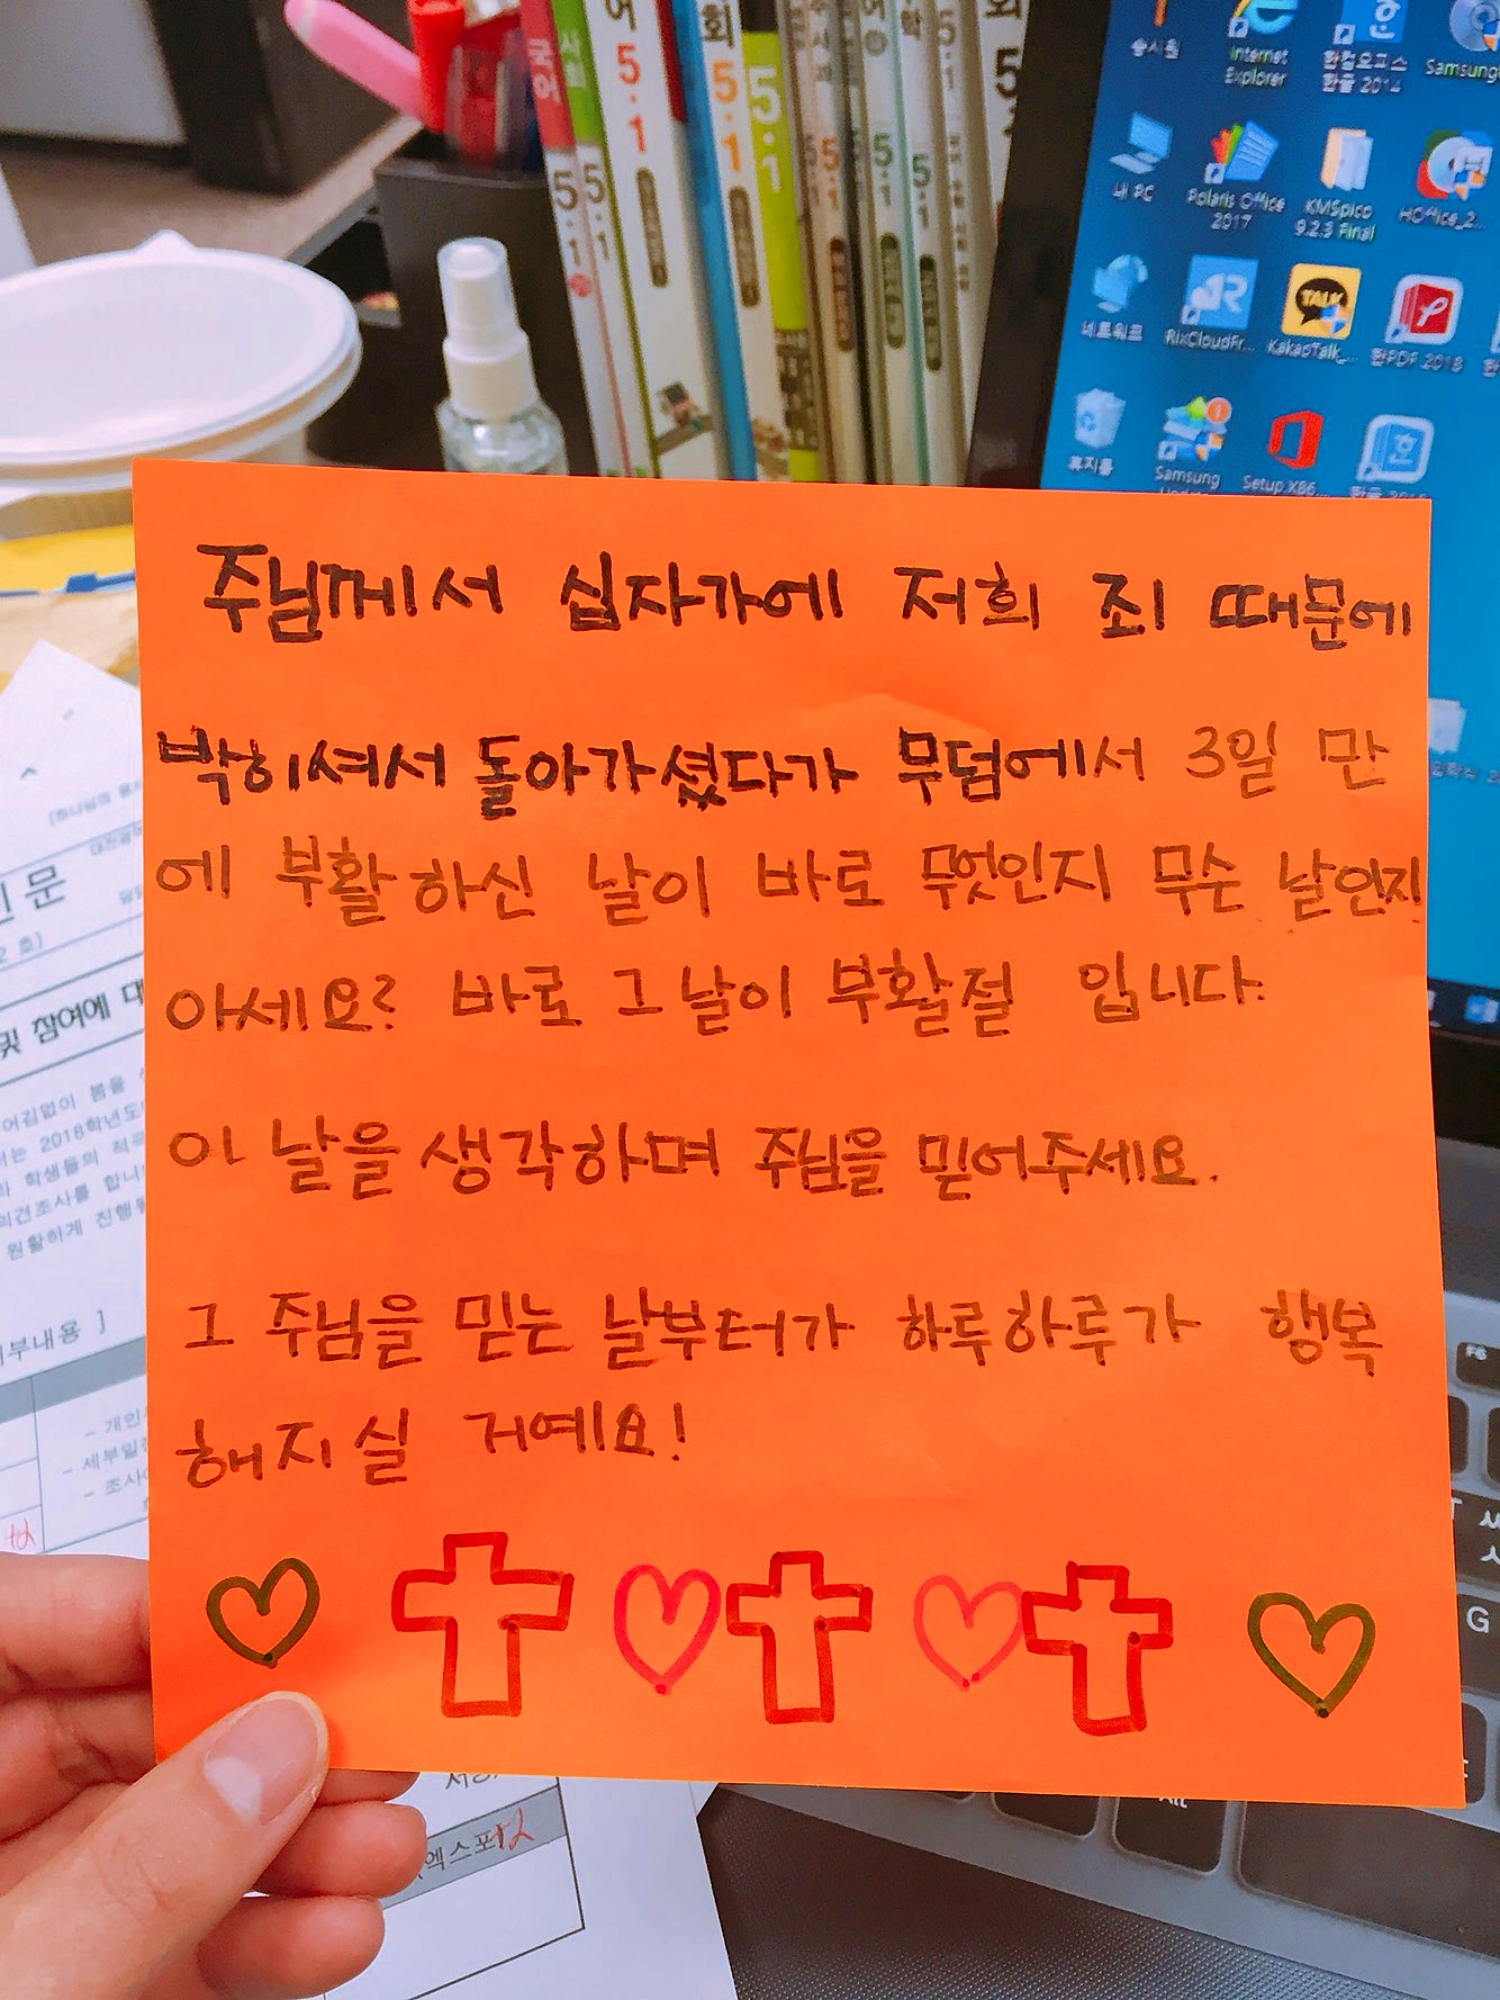 송시원
Internet Explorer
한컴오피스 한글 2014
Samsung
내 PC
Polaris Office 2017
KMSpico 9.2.3 Final
HOffice_2...
네트워크
RixCloudFr...
KakaoTalk_...
한PDF 2018
휴지통
Samsung
Setup.X86...
국어 5·1
사회 5·1
5·1
5·1
5·1
5·1
5·1
주님께서 십자가에 저희 죄 때문에
박히셔서 돌아가셨다가 무덤에서 3일 만
에 부활하신 날이 바로 무엇인지 무슨 날인지
아세요? 바로 그날이 부활절 입니다.
이 날을 생각하며 주님을 믿어주세요.
그 주님을 믿는 날부터가 하루하루가 행복
해지실 거예요!
참여에 대
어김없이 봄을
는 2018학년도
학생들의 적극
의견조사를 합니
원활하게 진행
부내용 ]
- 개인
- 세부일
- 조사
엑스포
F6
G
Alt